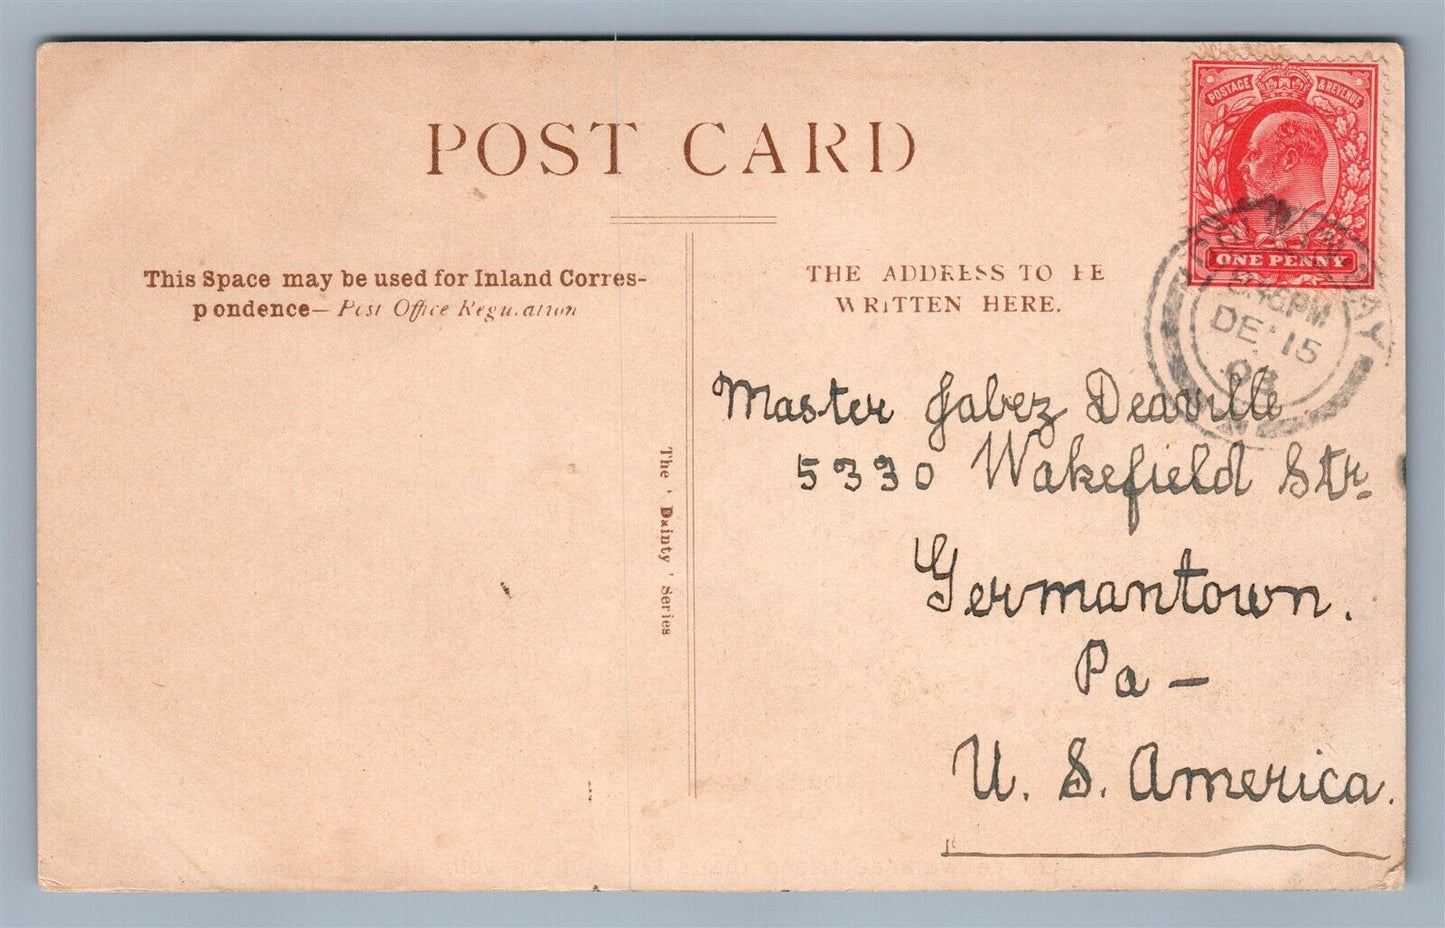 POST CARD
POSTAGE & REVENUE
ONE PENNY
COLWYN BAY
DE 15
This Space may be used for Inland Corres-
pondence— Post Office Regulation
THE ADDRESS TO BE
WRITTEN HERE.
The ‘Dainty’ Series
Master Jabez Deaville
5330 Wakefield Str.
Germantown.
Pa —
U. S. America.